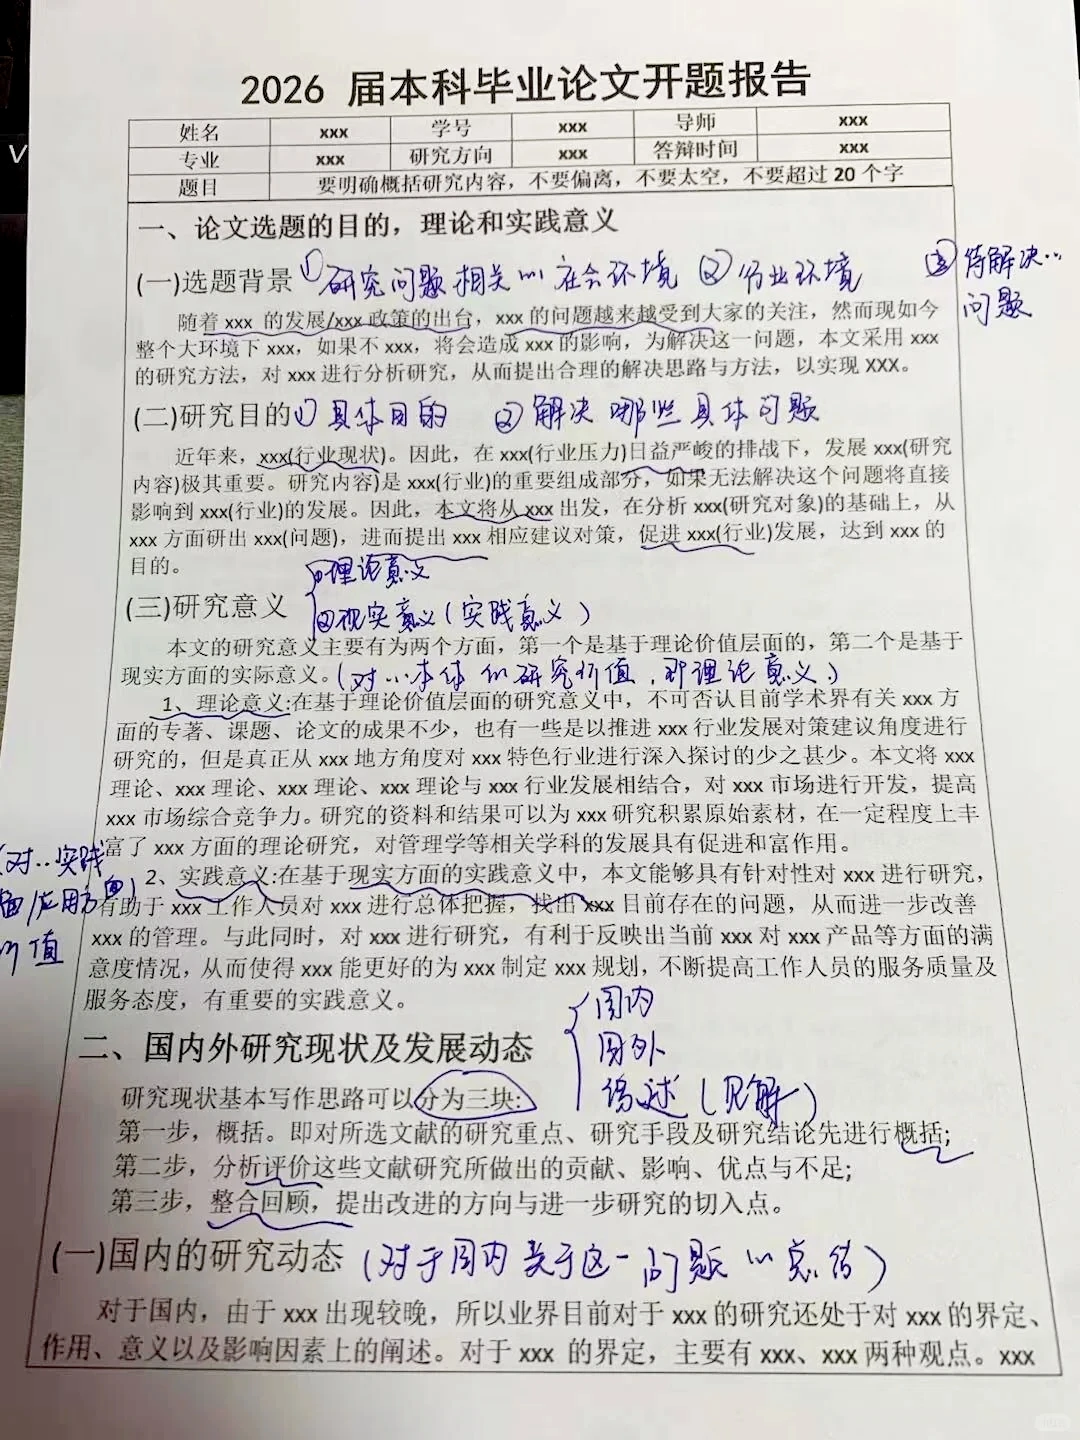 2026 届本科毕业论文开题报告
姓名 xxx 学号 xxx 导师 xxx
专业 xxx 研究方向 xxx 答辩时间 xxx
题目 要明确概括研究内容，不要偏离，不要太空，不要超过 20 个字
一、论文选题的目的，理论和实践意义
(一)选题背景 ①研究问题相关的社会环境 ②行业环境 ③待解决…
问题
随着 xxx 的发展/xxx 政策的出台，xxx 的问题越来越受到大家的关注，然而现如今
整个大环境下 xxx，如果不 xxx，将会造成 xxx 的影响，为解决这一问题，本文采用 xxx
的研究方法，对 xxx 进行分析研究，从而提出合理的解决思路与方法，以实现 XXX。
(二)研究目的 ①具体目的 ②解决哪些具体问题
近年来，xxx(行业现状)。因此，在 xxx(行业压力)日益严峻的排战下，发展 xxx(研究
内容)极其重要。研究内容)是 xxx(行业)的重要组成部分，如果无法解决这个问题将直接
影响到 xxx(行业)的发展。因此，本文将从 xxx 出发，在分析 xxx(研究对象)的基础上，从
xxx 方面研出 xxx(问题)，进而提出 xxx 相应建议对策，促进 xxx(行业)发展，达到 xxx 的
目的。
①理论意义
(三)研究意义 ②现实意义(实践意义)
本文的研究意义主要有为两个方面，第一个是基于理论价值层面的，第二个是基于
现实方面的实际意义。(对…本体的研究价值，即理论意义)
1、理论意义:在基于理论价值层面的研究意义中，不可否认目前学术界有关 xxx 方
面的专著、课题、论文的成果不少，也有一些是以推进 xxx 行业发展对策建议角度进行
研究的，但是真正从 xxx 地方角度对 xxx 特色行业进行深入探讨的少之甚少。本文将 xxx
理论、xxx 理论、xxx 理论、xxx 理论与 xxx 行业发展相结合，对 xxx 市场进行开发，提高
xxx 市场综合竞争力。研究的资料和结果可以为 xxx 研究积累原始素材，在一定程度上丰
富了 xxx 方面的理论研究，对管理学等相关学科的发展具有促进和富作用。
(对…实践
面/应用方面)
价值
2、实践意义:在基于现实方面的实践意义中，本文能够具有针对性对 xxx 进行研究，
有助于 xxx 工作人员对 xxx 进行总体把握，找出 xxx 目前存在的问题，从而进一步改善
xxx 的管理。与此同时，对 xxx 进行研究，有利于反映出当前 xxx 对 xxx 产品等方面的满
意度情况，从而使得 xxx 能更好的为 xxx 制定 xxx 规划，不断提高工作人员的服务质量及
服务态度，有重要的实践意义。
国内
二、国内外研究现状及发展动态 国外
综述(见解)
研究现状基本写作思路可以分为三块:
第一步，概括。即对所选文献的研究重点、研究手段及研究结论先进行概括;
第二步，分析评价这些文献研究所做出的贡献、影响、优点与不足;
第三步，整合回顾，提出改进的方向与进一步研究的切入点。
(一)国内的研究动态 (对于国内关于这一问题的总结)
对于国内，由于 xxx 出现较晚，所以业界目前对于 xxx 的研究还处于对 xxx 的界定、
作用、意义以及影响因素上的阐述。对于 xxx 的界定，主要有 xxx、xxx 两种观点。xxx